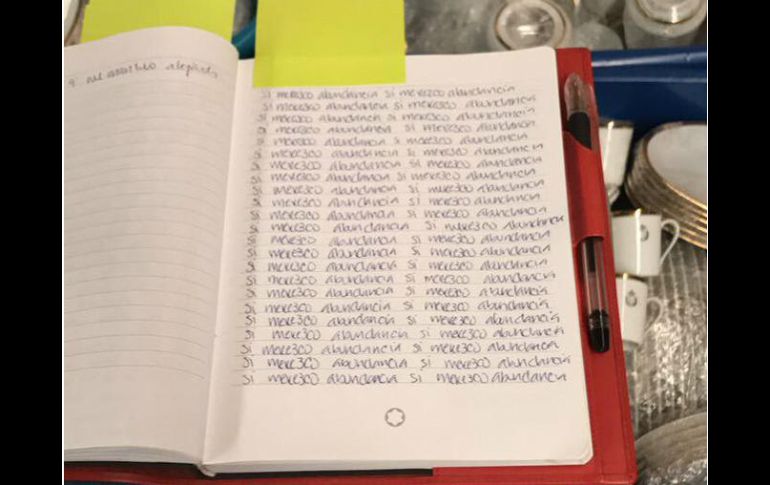 si merezco abundancia si merezco abundancia
si merezco abundancia si merezco abundancia
si merezco abundancia si merezco abundancia
si merezco abundancia si merezco abundancia
si merezco abundancia si merezco abundancia
si merezco abundancia si merezco abundancia
si merezco abundancia si merezco abundancia
si merezco abundancia si merezco abundancia
si merezco abundancia si merezco abundancia
si merezco abundancia si merezco abundancia
si merezco abundancia si merezco abundancia
si merezco abundancia si merezco abundancia
si merezco abundancia si merezco abundancia
si merezco abundancia si merezco abundancia
si merezco abundancia si merezco abundancia
si merezco abundancia si merezco abundancia
si merezco abundancia si merezco abundancia
si merezco abundancia si merezco abundancia
si merezco abundancia si merezco abundancia
si merezco abundancia si merezco abundancia
si merezco abundancia si merezco abundancia
si merezco abundancia si merezco abundancia
si merezco abundancia si merezco abundancia